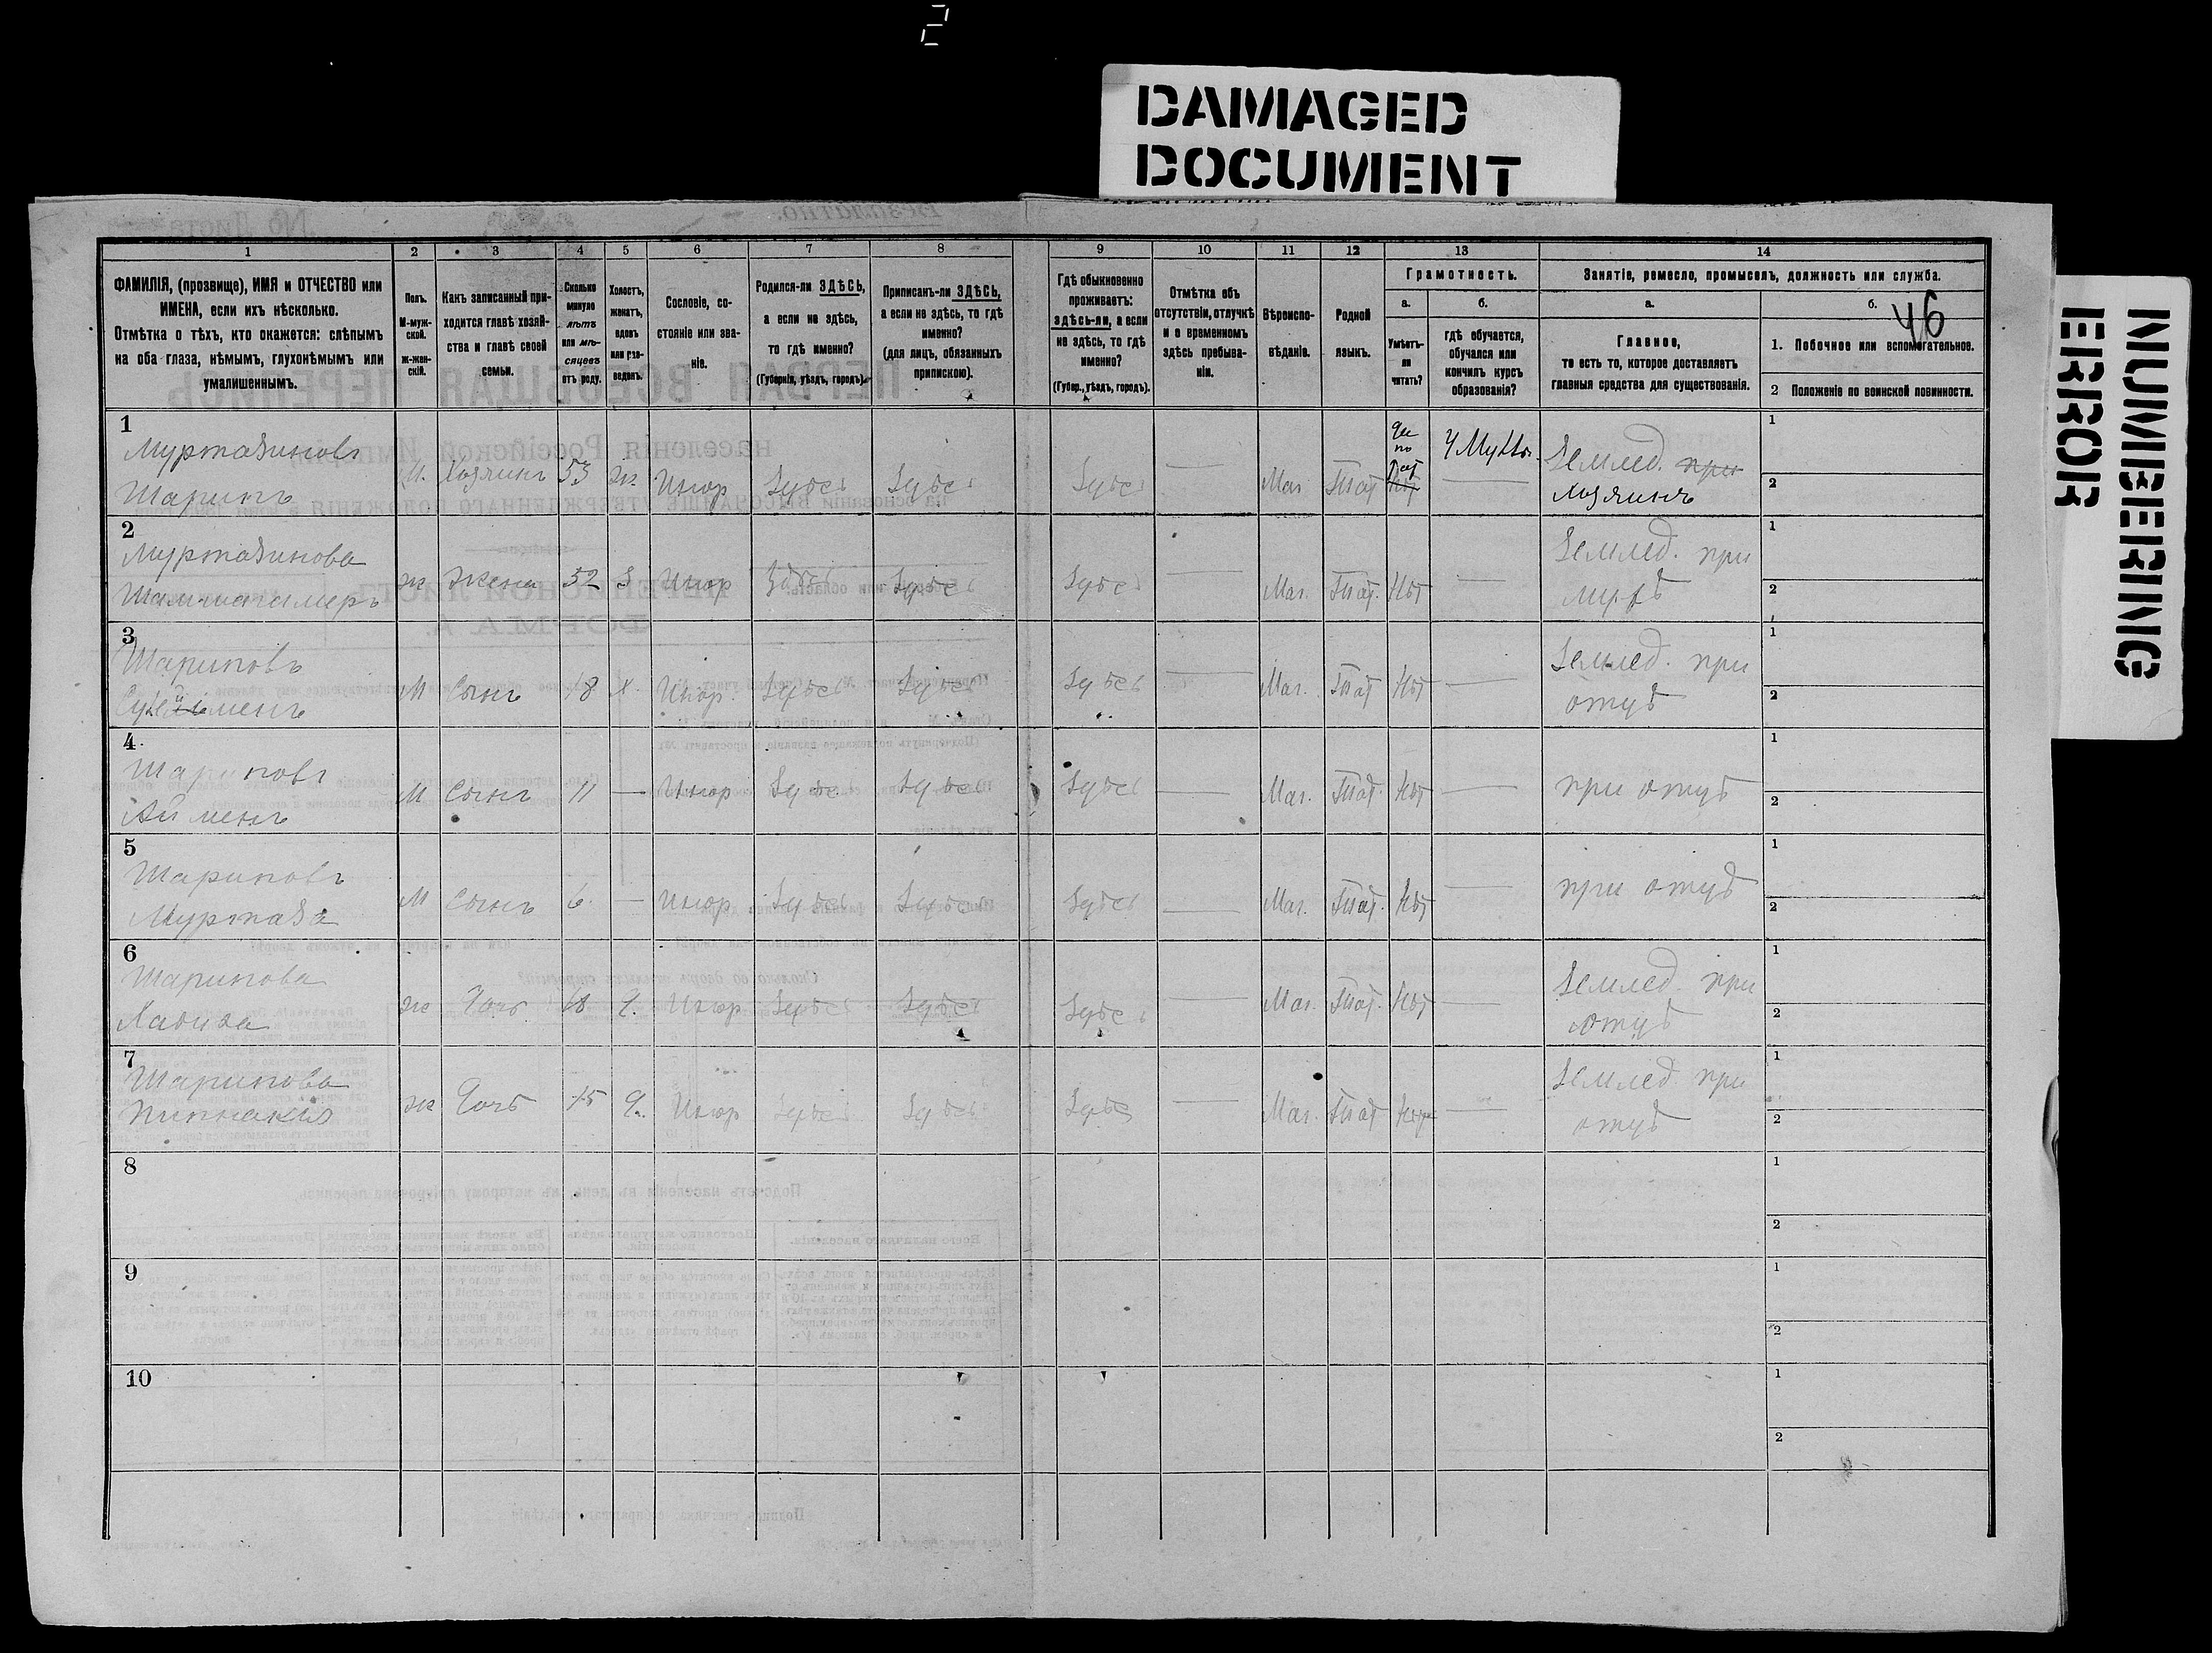 2
DAMAGED
DOCUMENT
NUMBERING
ERROR
46
1 2 3 4 5 6 7 8 9 10 11 12 13 14
ФАМИЛІЯ, (прозвище), ИМЯ и ОТЧЕСТВО или
ИМЕНА, если ихъ нѣсколько.
Отмѣтка о тѣхъ, кто окажется: слѣпымъ
на оба глаза, нѣмымъ, глухонѣмымъ или
умалишеннымъ.
Полъ.
М-муж-
ской.
ж-жен-
скій.
Какъ записанный при-
ходится главѣ хозяй-
ства и главѣ своей
семьи.
Сколько
минуло
лѣтъ
или мѣ-
сяцевъ
отъ роду.
Холостъ,
женатъ,
вдовъ
или раз-
веденъ.
Сословіе, со-
стояніе или зва-
ніе.
Родился-ли ЗДѢСЬ,
а если не здѣсь,
то гдѣ именно?
(Губернія, уѣздъ, городъ).
Приписанъ-ли ЗДѢСЬ,
а если не здѣсь, то гдѣ
именно?
(для лицъ, обязанныхъ
припискою).
Гдѣ обыкновенно
проживаетъ:
здѣсь-ли, а если
не здѣсь, то гдѣ
именно?
(Губер., уѣздъ, городъ).
Отмѣтка объ
отсутствіи, отлучкѣ
и о временномъ
здѣсь пребыва-
ніи.
Вѣроиспо-
вѣданіе.
Родной
языкъ.
Грамотность.
а.
Умѣетъ-
ли
читать?
б.
гдѣ обучается,
обучался или
кончилъ курсъ
образованія?
Занятіе, ремесло, промыселъ, должность или служба.
а.
Главное,
то есть то, которое доставляетъ
главныя средства для существованія.
б.
1. Побочное или вспомогательное.
2 Положеніе по воинской повинности.
1
Муртазиновъ
Шарипъ
М. Хозяинъ 53 Ж. Инор Здѣсь Здѣсь Здѣсь — Маг. Тат
да
по
Тат
нѣт
У Муллы
Землед. при
хозяинъ
1
2
2
Муртазинова
ж жена 52 З Инор Здѣсь Здѣсь Здѣсь — Маг. Тат. Нѣт —
Землед. при
мужѣ
1
2
3
Шариповъ
М Сынъ 18 Х. Инор Здѣсь Здѣсь Здѣсь — Маг. Тат Нѣт —
Землед. при
отцѣ
1
2
4
Шариповъ
Айменъ
М Сынъ 11 — Инор Здѣсь Здѣсь Здѣсь — Маг. Тат. Нѣт —
при отцѣ
1
2
5
Шариповъ
Муртаза
М Сынъ 6 — Инор Здѣсь Здѣсь Здѣсь — Маг. Тат. Нѣт —
при отцѣ
1
2
6
Шарипова
ж Дочь 18 Д. Инор Здѣсь Здѣсь Здѣсь — Маг. Тат. Нѣт —
Землед. при
отцѣ
1
2
7
Шарипова
ж Дочь 15 Д. Инор Здѣсь Здѣсь Здѣсь — Маг. Тат Нѣт —
Землед. при
отцѣ
1
2
8
1
2
9
1
2
10
1
2